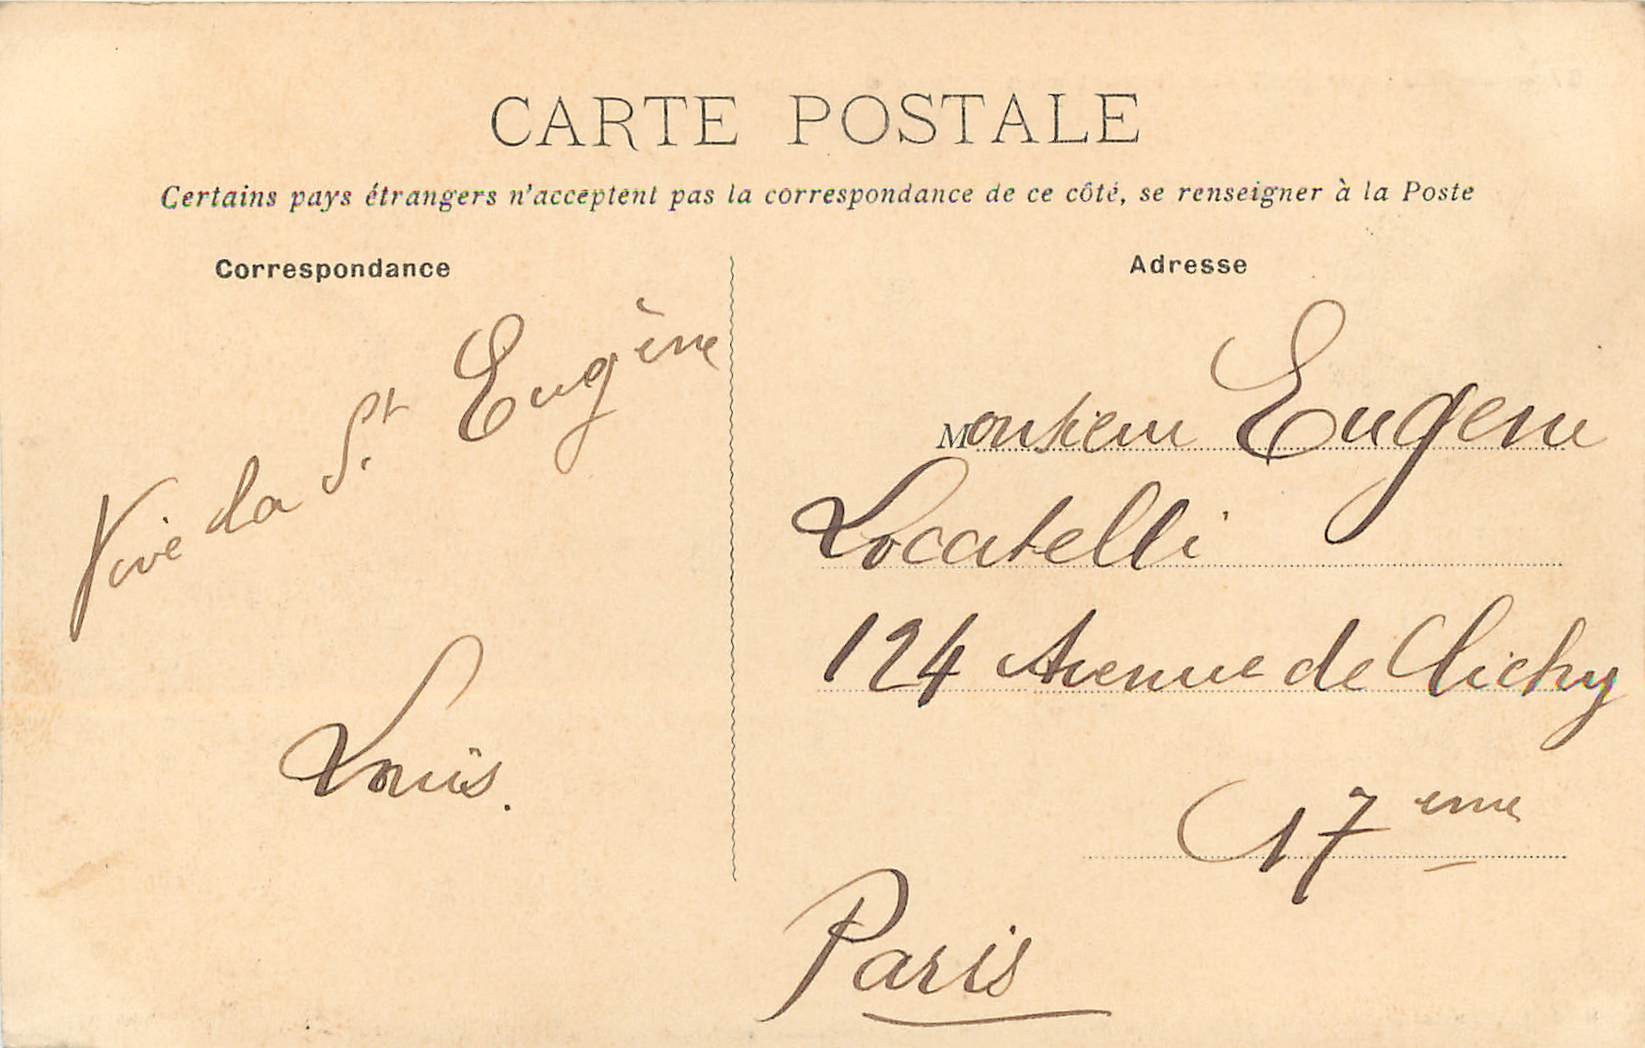 CARTE POSTALE
Certains pays étrangers n'acceptent pas la correspondance de ce côté, se renseigner à la Poste
Correspondance
Vive la St Eugène
Louis.
Adresse
Monsieur Eugene
Locatelli
124 Avenue de Clichy
17eme
Paris